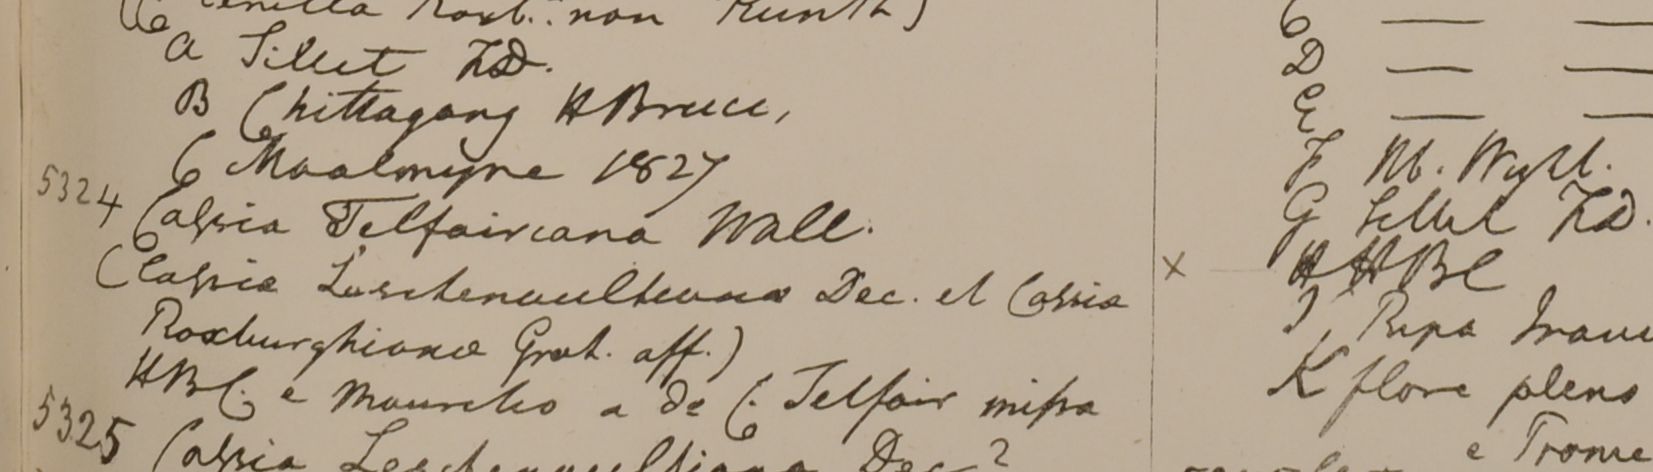 (C tenella Roxb. non Kunth)
a Sillet F.D.
B Chittagong HBruce,
C Moalmyne 1827
5324 Cassia Telfairiana Wall.
(Cassiae Leschenaultianae Dec. et Cassiae
Roxburghianae Grah. aff.)
HBC. e Mauritio a de C. Telfair missa
5325 Cassia Leschenaultiana Dec?
C — —
D — —
E — —
F M. Wight.
G Sillet F.D.
x H HBC
I, Ripa
K flore pleno
e